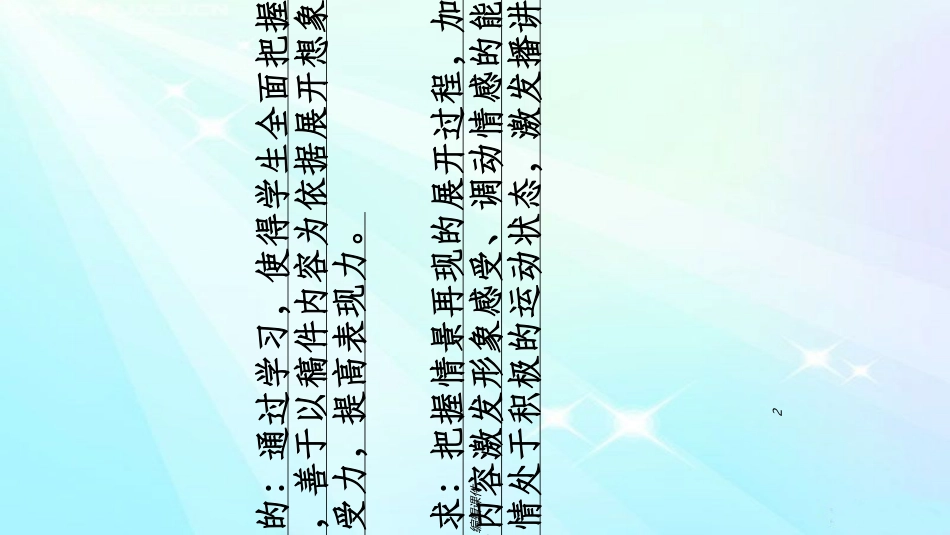 的：通过学习，使得学生全面把握
，善于以稿件内容为依据展开想象
受力，提高表现力。
求：把握情景再现的展开过程，加
内容激发形象感受、调动情感的能
情处于积极的运动状态，激发播讲
编辑课件
2